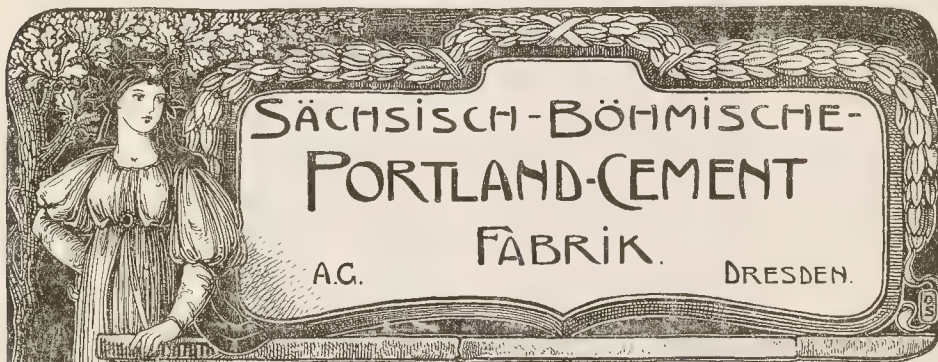 SÄCHSISCH-BÖHMISCHE-
PORTLAND-CEMENT
FABRIK.
A.G. DRESDEN.